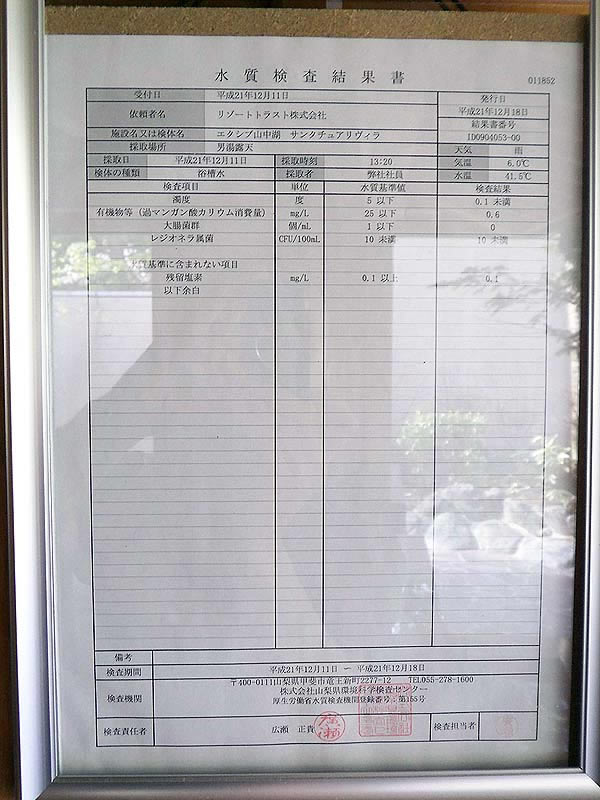 水質検査結果書
011852
受付日 平成21年12月11日 発行日
依頼者名 リゾートトラスト株式会社 平成21年12月18日
結果書番号
施設名又は検体名 エクシブ山中湖 サンクチュアリヴィラ ID0904053-00
採取場所 男湯露天 天気 雨
採取日 平成21年12月11日 採取時刻 13:20 気温 6.0℃
検体の種類 浴槽水 採取者 弊社社員 水温 41.5℃
検査項目 単位 水質基準値 検査結果
濁度 度 5 以下 0.1 未満
有機物等（過マンガン酸カリウム消費量） mg/L 25 以下 0.6
大腸菌群 個/mL 1 以下 0
レジオネラ属菌 CFU/100mL 10 未満 10 未満
水質基準に含まれない項目
残留塩素 mg/L 0.1 以上 0.1
以下余白
備考
検査期間 平成21年12月11日 ～ 平成21年12月18日
検査機関 〒400-0111山梨県甲斐市竜王新町2277-12 TEL055-278-1600
株式会社山梨県環境科学検査センター
厚生労働省水質検査機関登録番号：第155号
検査責任者 広瀬 正貴 広瀬 検査担当者